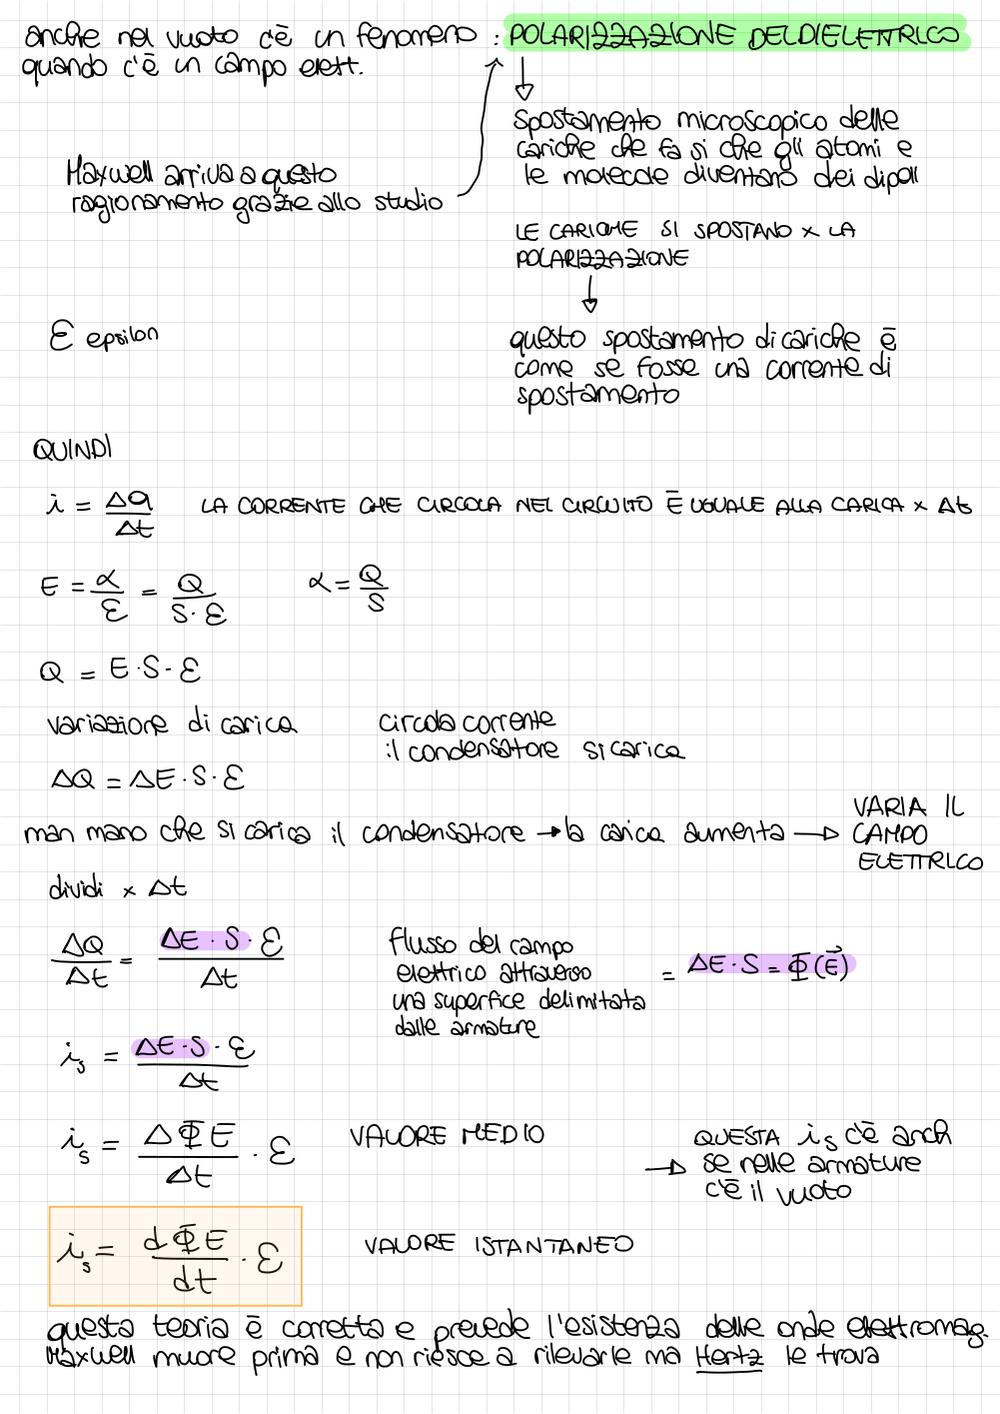 anche nel vuoto c'è un fenomeno : POLARIZZAZIONE DEL DIELETTRICO
quando c'è un campo elett.
Spostamento microscopico delle
cariche che fa si che gli atomi e
le molecole diventano dei dipoli
Maxwell arriva a questo
ragionamento grazie allo studio
LE CARICHE SI SPOSTANO x LA
POLARIZZAZIONE
ℇ epsilon
questo spostamento di cariche è
come se fosse una corrente di
spostamento
QUINDI
i = ΔQ/Δt LA CORRENTE CHE CIRCOLA NEL CIRCUITO È UGUALE ALLA CARICA x Δt
E = α/ℇ = Q/S·ℇ α = Q/S
Q = E·S·ℇ
variazione di carica
circola corrente
il condensatore si carica
ΔQ = ΔE·S·ℇ
man mano che si carica il condensatore → la carica aumenta → VARIA IL
CAMPO
ELETTRICO
dividi x Δt
ΔQ/Δt = ΔE·S·ℇ/Δt
flusso del campo
elettrico attraverso
una superfice delimitata
dalle armature
= ΔE·S = Φ(E⃗)
iₛ = ΔE·S·ℇ/Δt
iₛ = ΔΦE/Δt · ℇ VALORE MEDIO
→ QUESTA iₛ c'è anch
se nelle armature
c'è il vuoto
iₛ = dΦE/dt · ℇ VALORE ISTANTANEO
questa teoria è corretta e prevede l'esistenza delle onde elettromag.
Maxwell muore prima e non riesce a rilevarle ma Hertz le trova